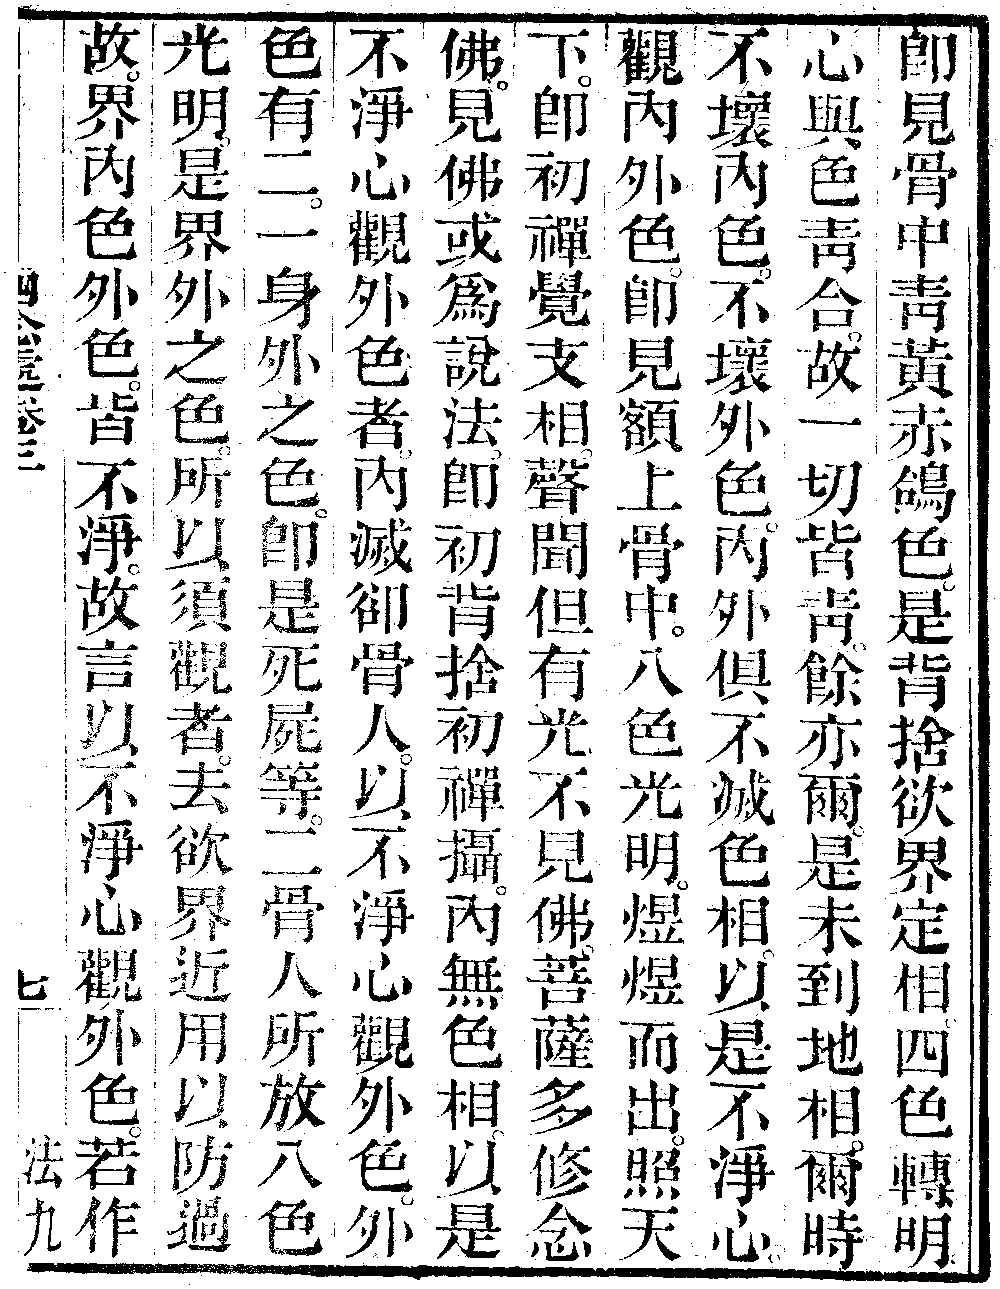 卽見骨中靑黃赤鴿色。是背捨欲界定相。四色轉明
心與色靑合。故一切皆靑。餘亦爾。是未到地相。爾時
不壞內色。不壞外色。內外俱不滅色相。以是不淨心。
觀內外色。卽見額上骨中。八色光明。煜煜而出。照天
下。卽初禪覺支相。聲聞但有光不見佛。菩薩多修念
佛。見佛或爲說法。卽初背捨初禪攝。內無色相。以是
不淨心觀外色者。內滅卻骨人。以不淨心觀外色。外
色有二。一身外之色。卽是死屍等。二骨人所放八色
光明。是界外之色。所以須觀者。去欲界近用以防過
故。界內色外色。皆不淨。故言以不淨心觀外色。若作
四念處卷三 七 法九